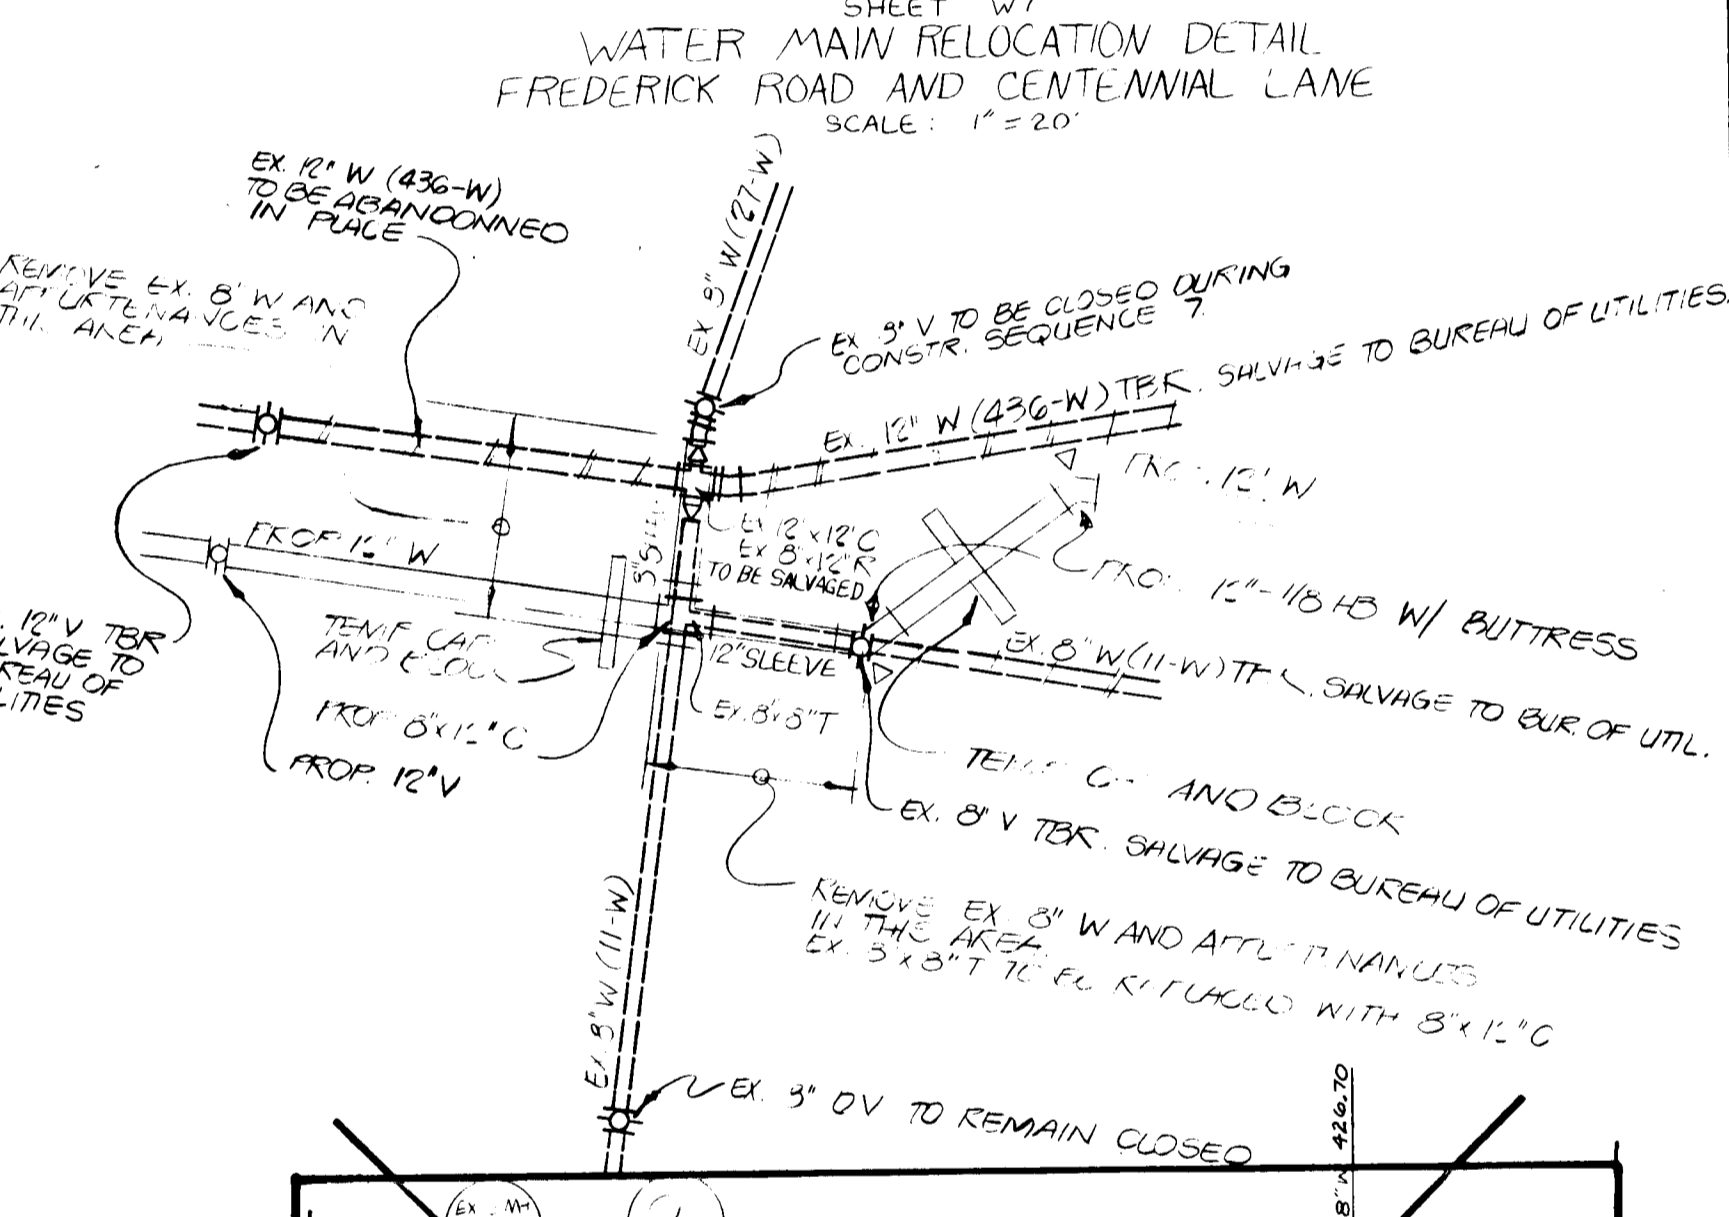 SHEET W7
WATER MAIN RELOCATION DETAIL
FREDERICK ROAD AND CENTENNIAL LANE
SCALE: 1" = 20'
EX. 12" W (436-W)
TO BE ABANDONNED
IN PLACE
REMOVE EX. 8" W AND
APPURTENANCES IN
THIS AREA
EX 8" W (27-W)
EX 8" V TO BE CLOSED DURING
CONSTR. SEQUENCE 7.
EX. 12" W (436-W) TBR. SALVAGE TO BUREAU OF UTILITIES.
PROP. 12" W
PROP 12" W
EX 12" x 12" C
EX 8" x 12" R
TO BE SALVAGED
PROP. 12"-1/8 HB W/ BUTTRESS
12" V TBR
SALVAGE TO
BUREAU OF
UTILITIES
TEMP CAP
AND BLOCK
12" SLEEVE
EX. 8" W (11-W) TBR. SALVAGE TO BUR. OF UTIL.
PROP 8" x 12" C
EX. 8" x 8" T
PROP. 12" V
TEMP CAP AND BLOCK
EX. 8" V TBR. SALVAGE TO BUREAU OF UTILITIES
REMOVE EX. 8" W AND APPURTENANCES
IN THIS AREA.
EX. 8" x 8" T TO BE REPLACED WITH 8" x 12" C
EX. 8" W (11-W)
EX. 8" DV TO REMAIN CLOSED
8" W 426.70
EX. MH